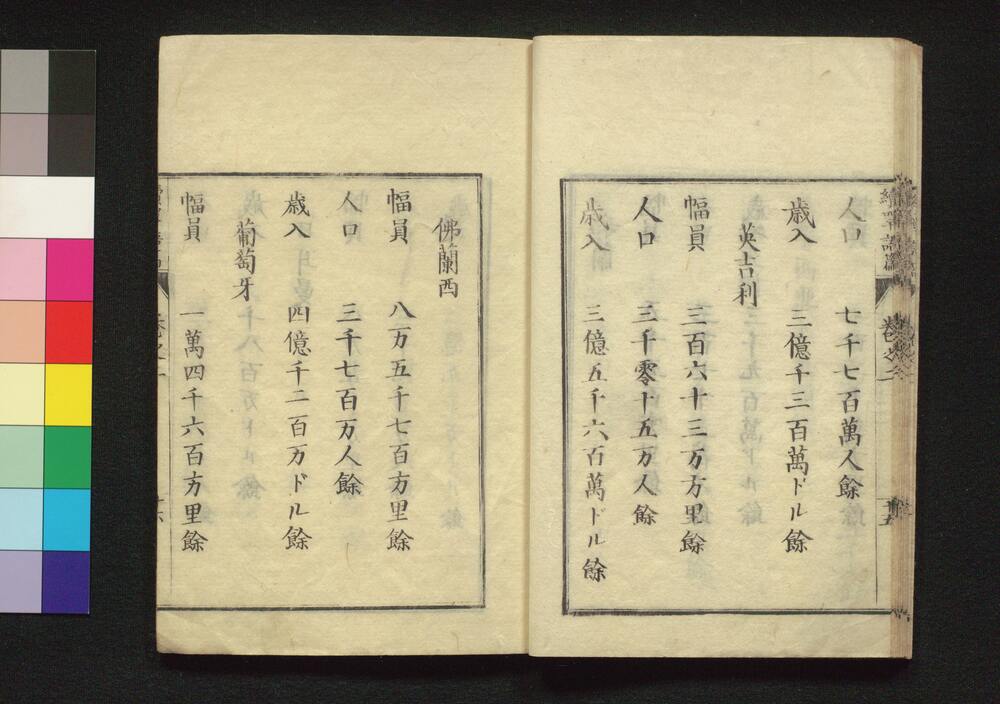 人口　七千七百萬人餘
歳入　三億千三百萬ドル餘
英吉利
幅員　三百六十三万方里餘
人口　三千零十五万人餘
歳入　三億五千六百萬ドル餘
佛蘭西
幅員　八万五千七百方里餘
人口　三千七百万人餘
歳入　四億千二百万ドル餘
葡萄牙
幅員　一萬四千六百方里餘